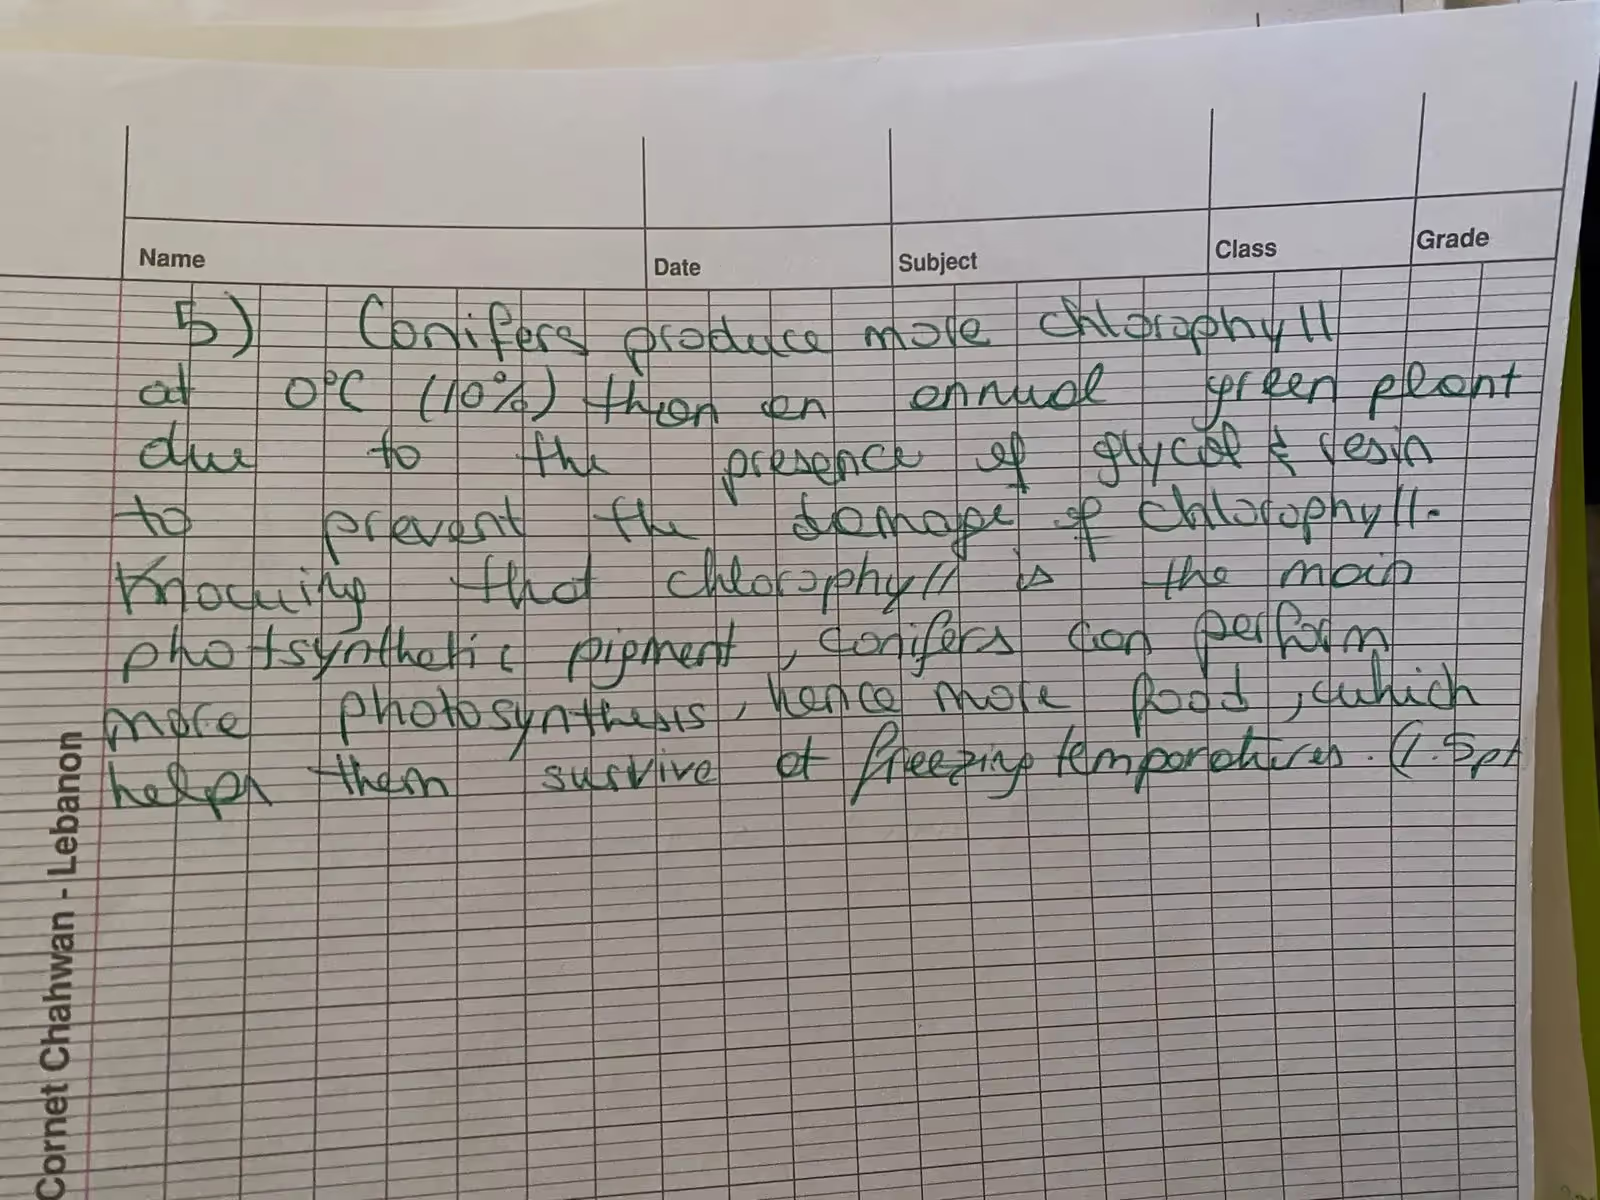 Name Date Subject Class Grade
5) Conifers produce more chlorophyll
at 0°C (10%) than an annual green plant
due to the presence of glycol & resin
to prevent the damage of chlorophyll.
Knowing that chlorophyll is the main
photsynthetic pigment, conifers can perform
more photosynthesis, hence more food, which
helps them survive at freezing temperatures. (1.5pt
Cornet Chahwan - Lebanon